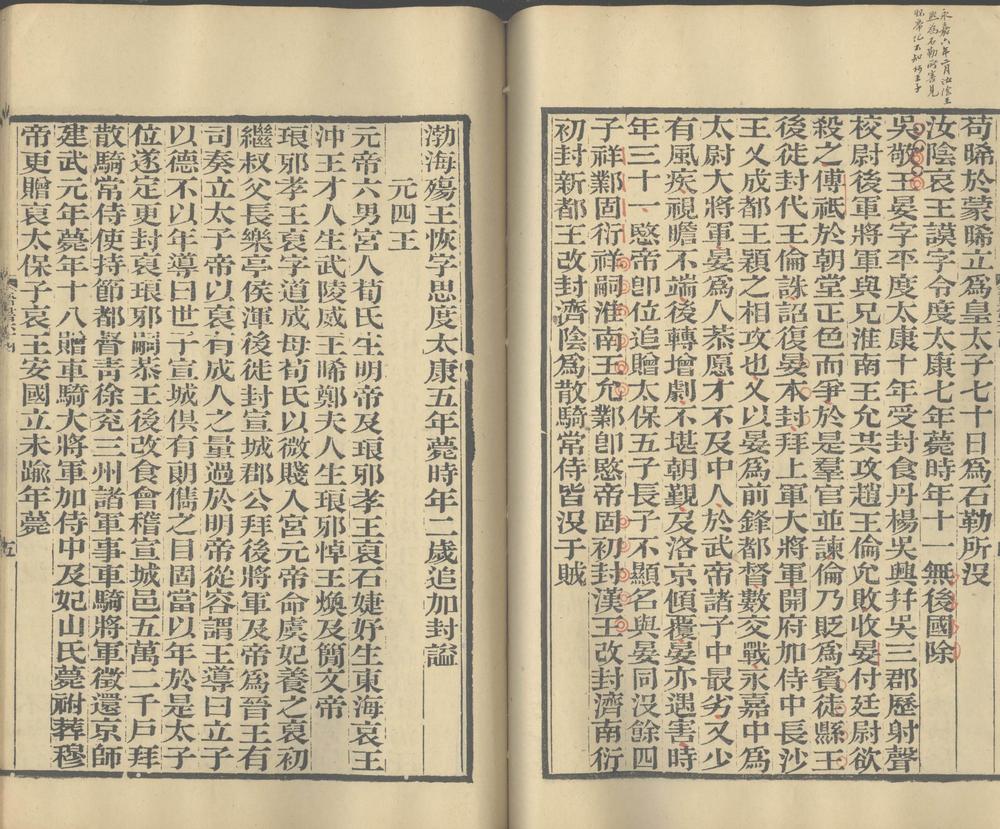 永嘉六年二月汝陰王
熙為石勒所害見
懷帝紀不知何王子
苟晞於蒙晞立爲皇太子七十日爲石勒所沒
汝陰哀王謨字令度太康七年薨時年十一無後國除
吳敬王晏字平度太康十年受封食丹楊吳興幷吳三郡歷射聲
校尉後軍將軍與兄淮南王允共攻趙王倫允敗收晏付廷尉欲
殺之傅祗於朝堂正色而爭於是羣官並諫倫乃貶爲賓徒縣王
後徙封代王倫誅詔復晏本封拜上軍大將軍開府加侍中長沙
王乂成都王穎之相攻也乂以晏爲前鋒都督數交戰永嘉中爲
太尉大將軍晏爲人恭愿才不及中人於武帝諸子中最劣又少
有風疾視瞻不端後轉增劇不堪朝覲及洛京傾覆晏亦遇害時
年三十一愍帝卽位追贈太保五子長子不顯名與晏同沒餘四
子祥鄴固衍祥嗣淮南王允鄴卽愍帝固初封漢王改封濟南衍
初封新都王改封濟陰爲散騎常侍皆沒于賊
渤海殤王恢字思度太康五年薨時年二歲追加封諡
元四王
元帝六男宮人荀氏生明帝及琅邪孝王裒石婕妤生東海哀王
沖王才人生武陵威王晞鄭夫人生琅邪悼王煥及簡文帝
琅邪孝王裒字道成母荀氏以微賤入宮元帝命虞妃養之裒初
繼叔父長樂亭侯渾後徙封宣城郡公拜後將軍及帝爲晉王有
司奏立太子帝以裒有成人之量過於明帝從容謂王導曰立子
以德不以年導曰世子宣城俱有朗儁之目固當以年於是太子
位遂定更封裒琅邪嗣恭王後改食會稽宣城邑五萬二千戶拜
散騎常侍使持節都督青徐兗三州諸軍事車騎將軍徵還京師
建武元年薨年十八贈車騎大將軍加侍中及妃山氏薨祔葬穆
帝更贈裒太保子哀王安國立未踰年薨
五